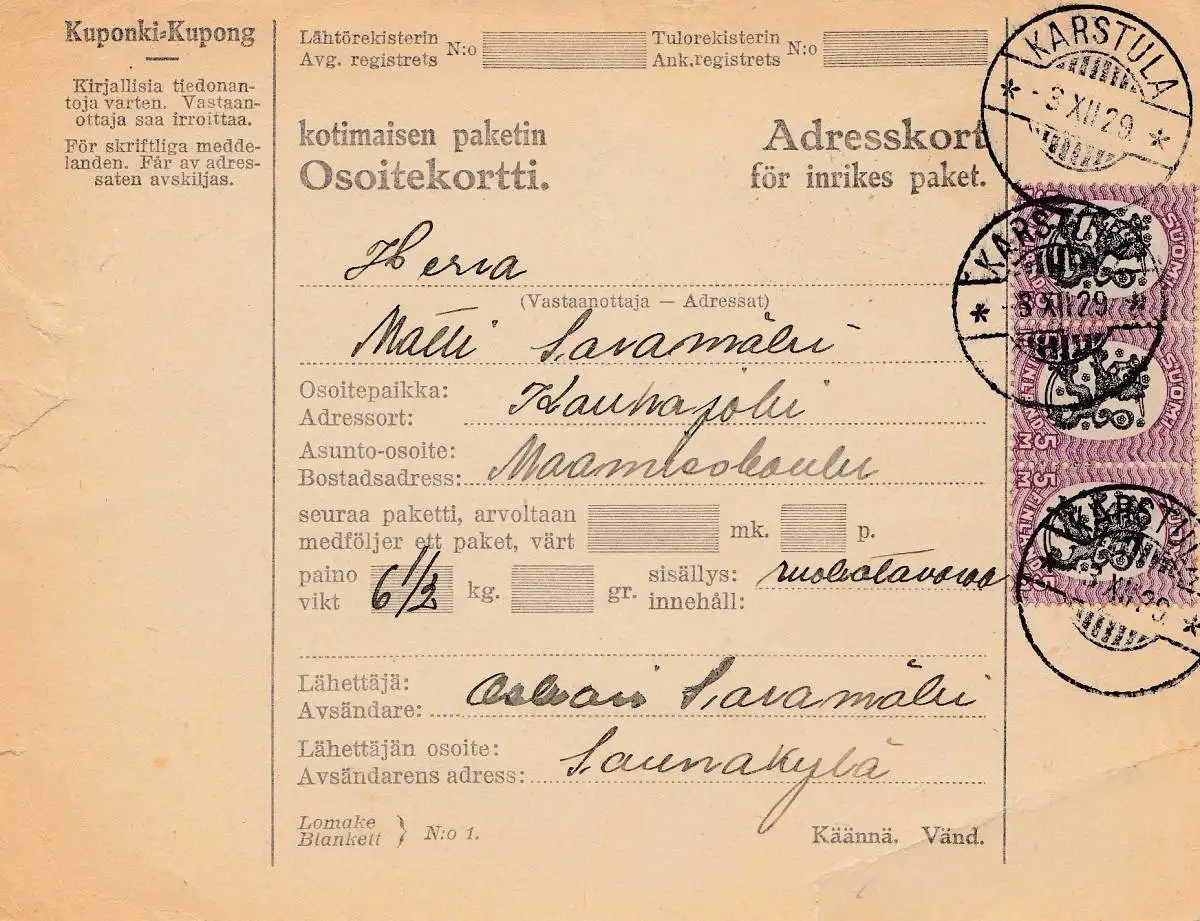 Kuponki-Kupong
Kirjallisia tiedonan-
toja varten. Vastaan-
ottaja saa irroittaa.
För skriftliga medde-
landen. Får av adres-
saten avskiljas.
Lähtörekisterin
Avg. registrets N:o
Tulorekisterin
Ank.registrets N:o
kotimaisen paketin
Osoitekortti.
Adresskort
för inrikes paket.
Herra
(Vastaanottaja — Adressat)
Matti Saramäki
Osoitepaikka:
Adressort: Kauhajoki
Asunto-osoite:
Bostadsadress: Maamieskoulu
seuraa paketti, arvoltaan
medföljer ett paket, värt mk. p.
paino
vikt 6 1/2 kg. gr.
sisällys:
innehåll: ruokatavaraa
Lähettäjä:
Avsändare: Saramäki
Lähettäjän osoite:
Avsändarens adress: Saunakylä
Lomake
Blankett } N:o 1.
Käännä. Vänd.
KARSTULA
-3 XII 29
KARSTULA
XII 29
SUOMI
FINLAND
5 M
SUOMI
FINLAND
5 M
KARSTULA
XII 29